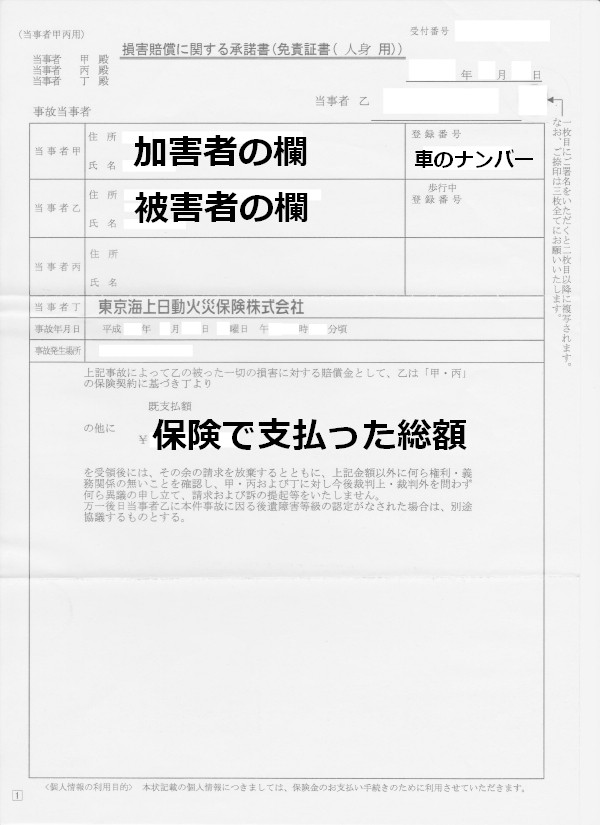 (当事者甲丙用)
受付番号
損害賠償に関する承諾書(免責証書( 人身 用))
当事者 甲 殿
当事者 丙 殿
当事者 丁 殿
年 月 日
当事者 乙
一枚目にご署名をいただくと二枚目以降に複写されます。
なお、ご捺印は三枚全てにお願いいたします。
事故当事者
当事者甲
住 所
加害者の欄
氏 名
登録番号
車のナンバー
当事者乙
住 所
被害者の欄
氏 名
歩行中
登録番号
当事者丙
住 所
氏 名
当事者丁 東京海上日動火災保険株式会社
事故年月日 平成 年 月 日 曜日 午 時 分頃
事故発生場所
上記事故によって乙の被った一切の損害に対する賠償金として、乙は「甲・丙」
の保険契約に基づき丁より
既支払額
の他に
¥ 保険で支払った総額
を受領後には、その余の請求を放棄するとともに、上記金額以外に何ら権利・義
務関係の無いことを確認し、甲・丙および丁に対し今後裁判上・裁判外を問わず
何ら異議の申し立て、請求および訴の提起等をいたしません。
万一後日当事者乙に本件事故に因る後遺障害等級の認定がなされた場合は、別途
協議するものとする。
<個人情報の利用目的> 本状記載の個人情報につきましては、保険金のお支払い手続きのために利用させていただきます。
1